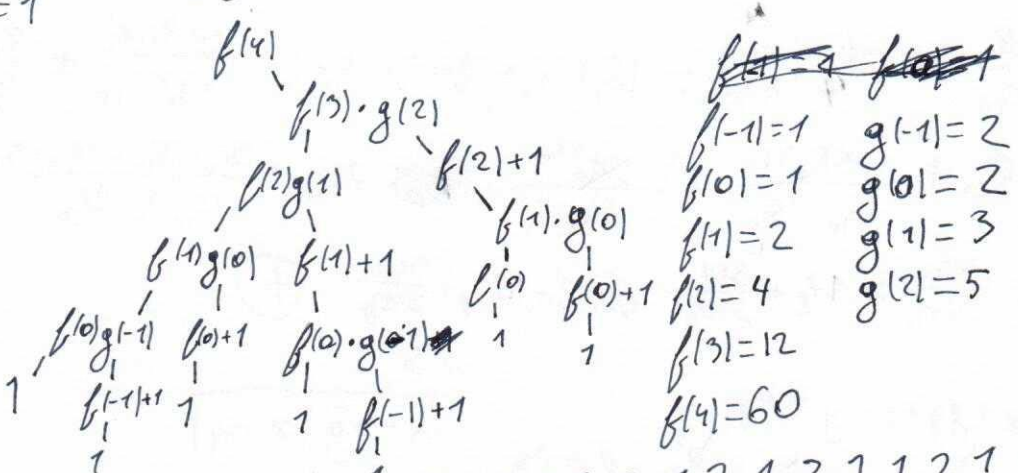 =1
f(4)
f(3)·g(2)
f(2)g(1) f(2)+1
f(1)g(0) f(1)+1 f(1)·g(0)
f(0)g(-1) f(0)+1 f(0)·g(-1) f(0) f(0)+1
1 f(-1)+1 1 1 f(-1)+1 1 1
1
f(-1)=1 g(-1)=2
f(0)=1 g(0)=2
f(1)=2 g(1)=3
f(2)=4 g(2)=5
f(3)=12
f(4)=60